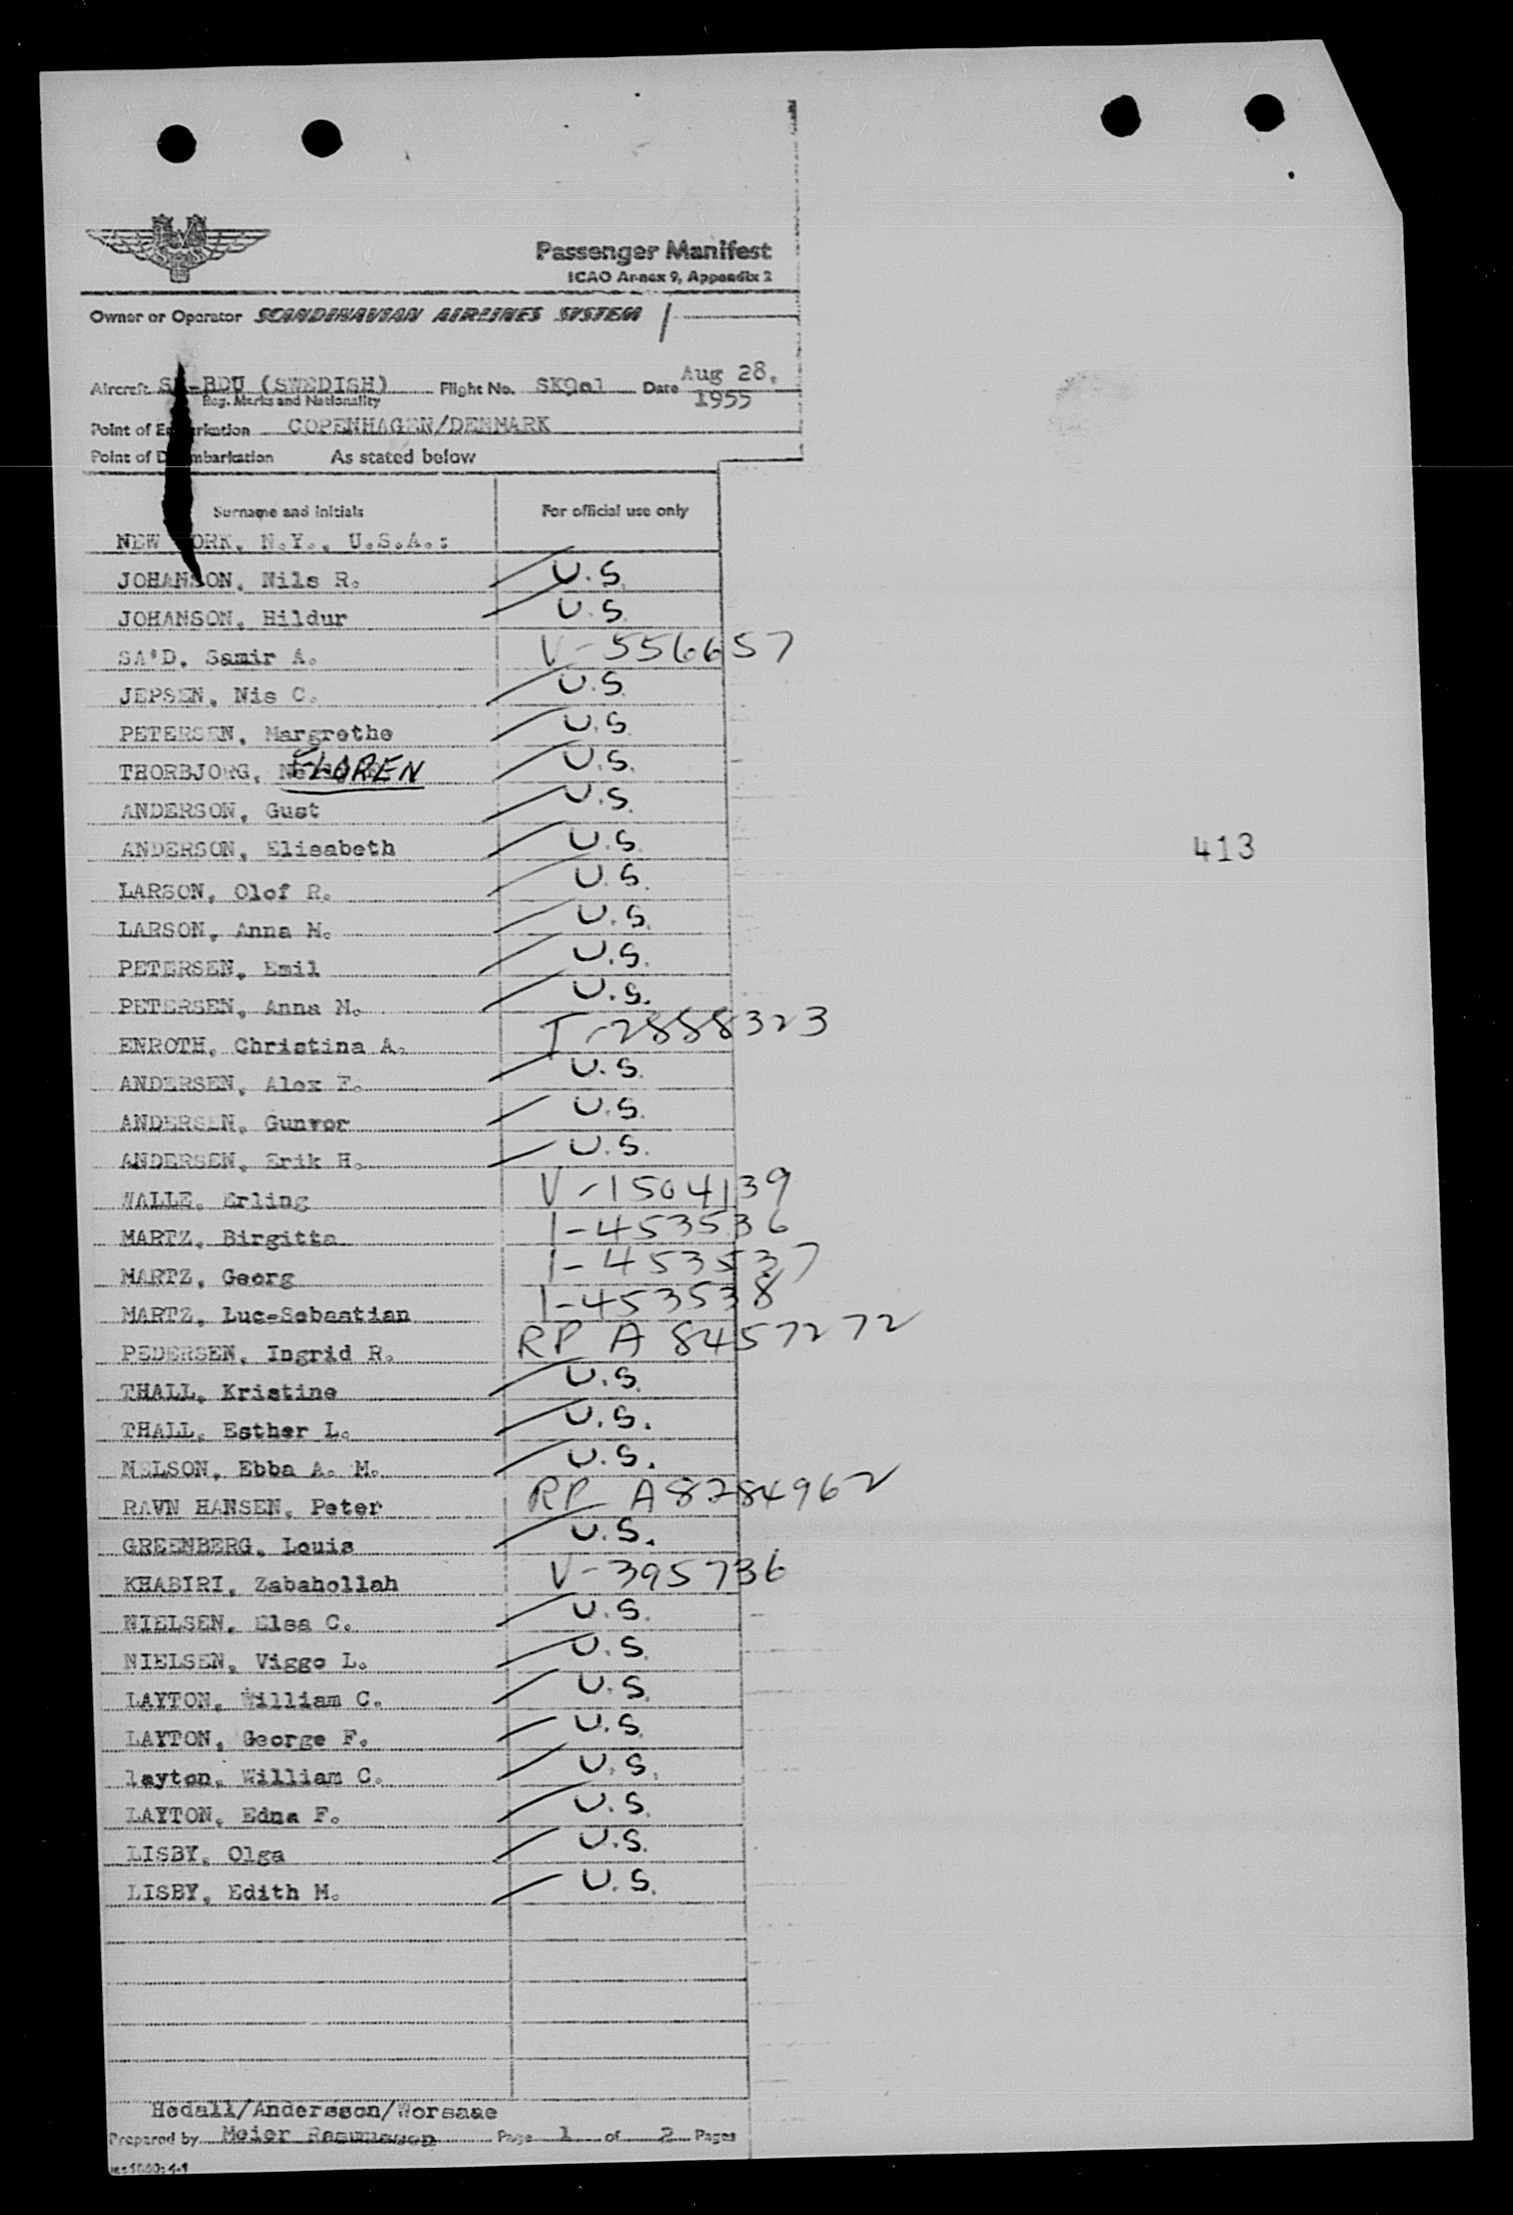 Passenger Manifest
ICAO Annex 9, Appendix 2
Owner or Operator SCANDINAVIAN AIRLINES SYSTEM
Aircraft -BDU (SWEDISH) Flight No. SK901 Date Aug 28, 1955
Reg. Marks and Nationality
Point of COPENHAGEN/DENMARK
Point of As stated below
Surname and initials For official use only
NEW ORK, N.Y., U.S.A.:
JOHANSON, Nils R. U.S.
JOHANSON, Hildur U.S.
SA'D, Samir A. V-556657
JEPSEN, Nis C. U.S.
PETERSEN, Margrethe U.S.
THORBJORG, FLOREN U.S.
ANDERSON, Gust U.S.
ANDERSON, Elisabeth U.S.
413
LARSON, Olof R. U.S.
LARSON, Anna M. U.S.
PETERSEN, Emil U.S.
PETERSEN, Anna M. U.S.
ENROTH, Christina A. I-2888323
ANDERSEN, Alex F. U.S.
ANDERSEN, Gunvor U.S.
ANDERSEN, Erik H. U.S.
WALLE, Erling V-1504139
MARTZ, Birgitta I-453536
MARTZ, Georg I-453537
MARTZ, Luc-Sebastian I-453538
PEDERSEN, Ingrid R. RP A 8457272
THALL, Kristine U.S.
THALL, Esther L. U.S.
NELSON, Ebba A. M. U.S.
RAVN HANSEN, Peter RP A8284962
GREENBERG, Louis U.S.
KHABIRI, Zabahollah V-395736
NIELSEN, Elsa C. U.S.
NIELSEN, Viggo L. U.S.
LAYTON, William C. U.S.
LAYTON, George F. U.S.
layton, William C. U.S.
LAYTON, Edna F. U.S.
LISBY, Olga U.S.
LISBY, Edith M. U.S.
Hedall/Andersson/Worsaae
Prepared by Meier Rasmussen Page 1 of 2 Pages